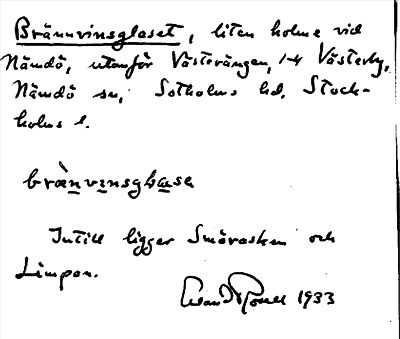 Brännvinsglaset, liten holme vid
Nämdö, utanför Västerängen, 1-4 Västerby,
Nämdö sn, Sotholms hd, Stock-
holms l.
brä̀nvınsglɑsə
Intill ligger Smörasken och
Limpan.
1933